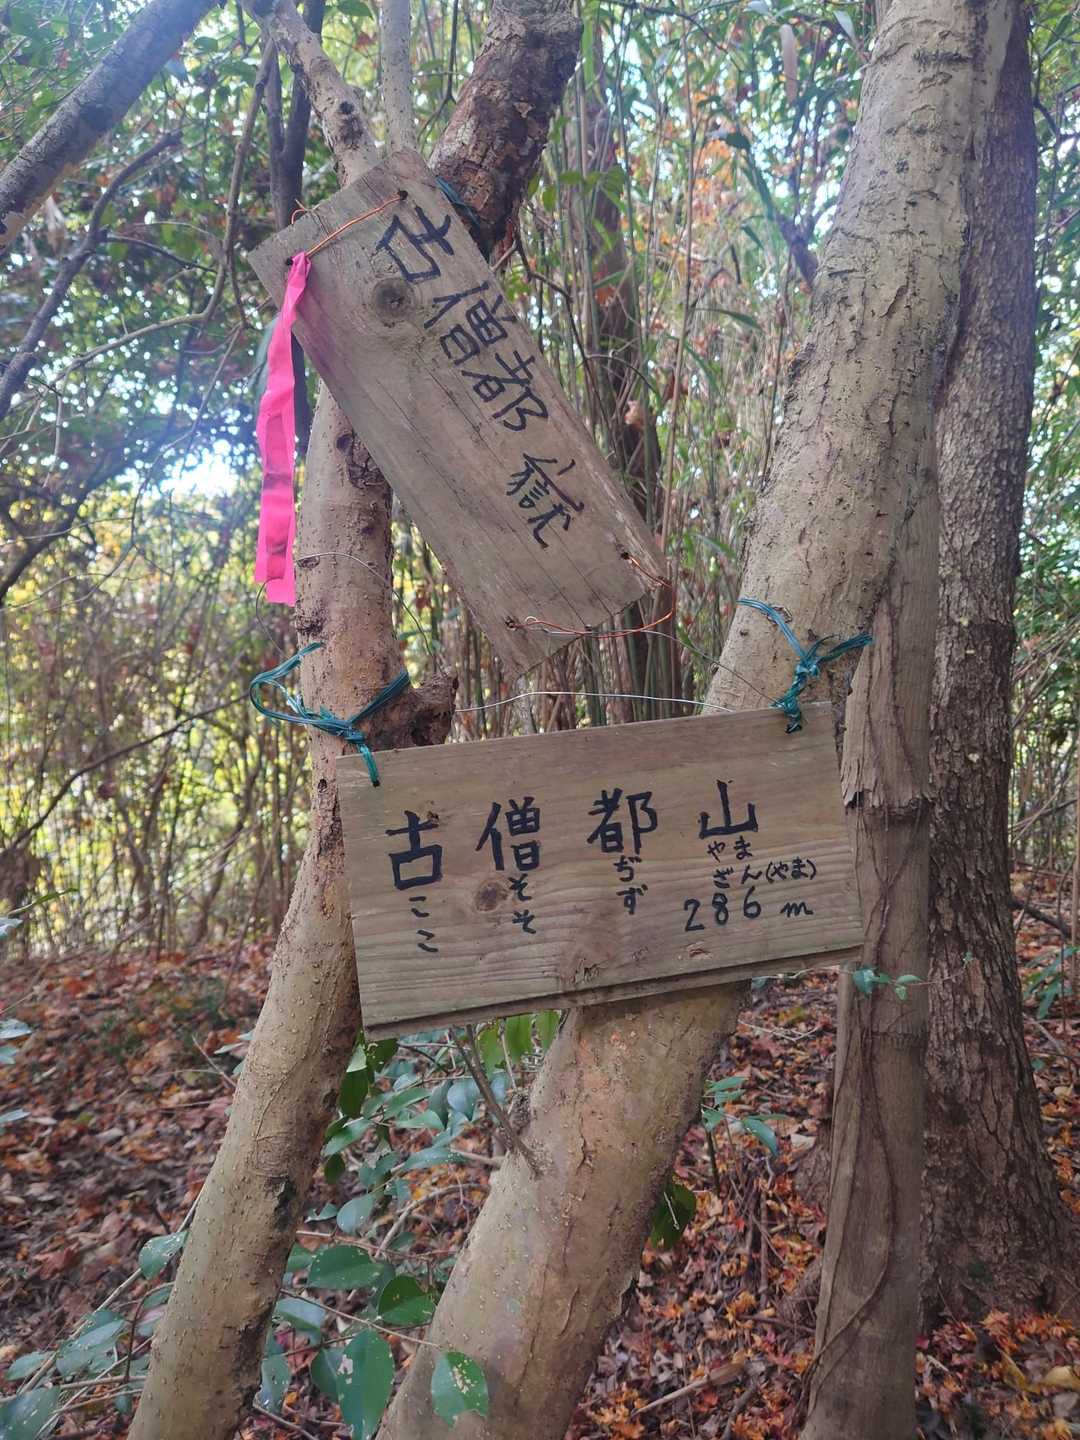 古僧都嶽
古僧都山
こ そ ぢ やま
こ そ ず ざん(やま)
286m